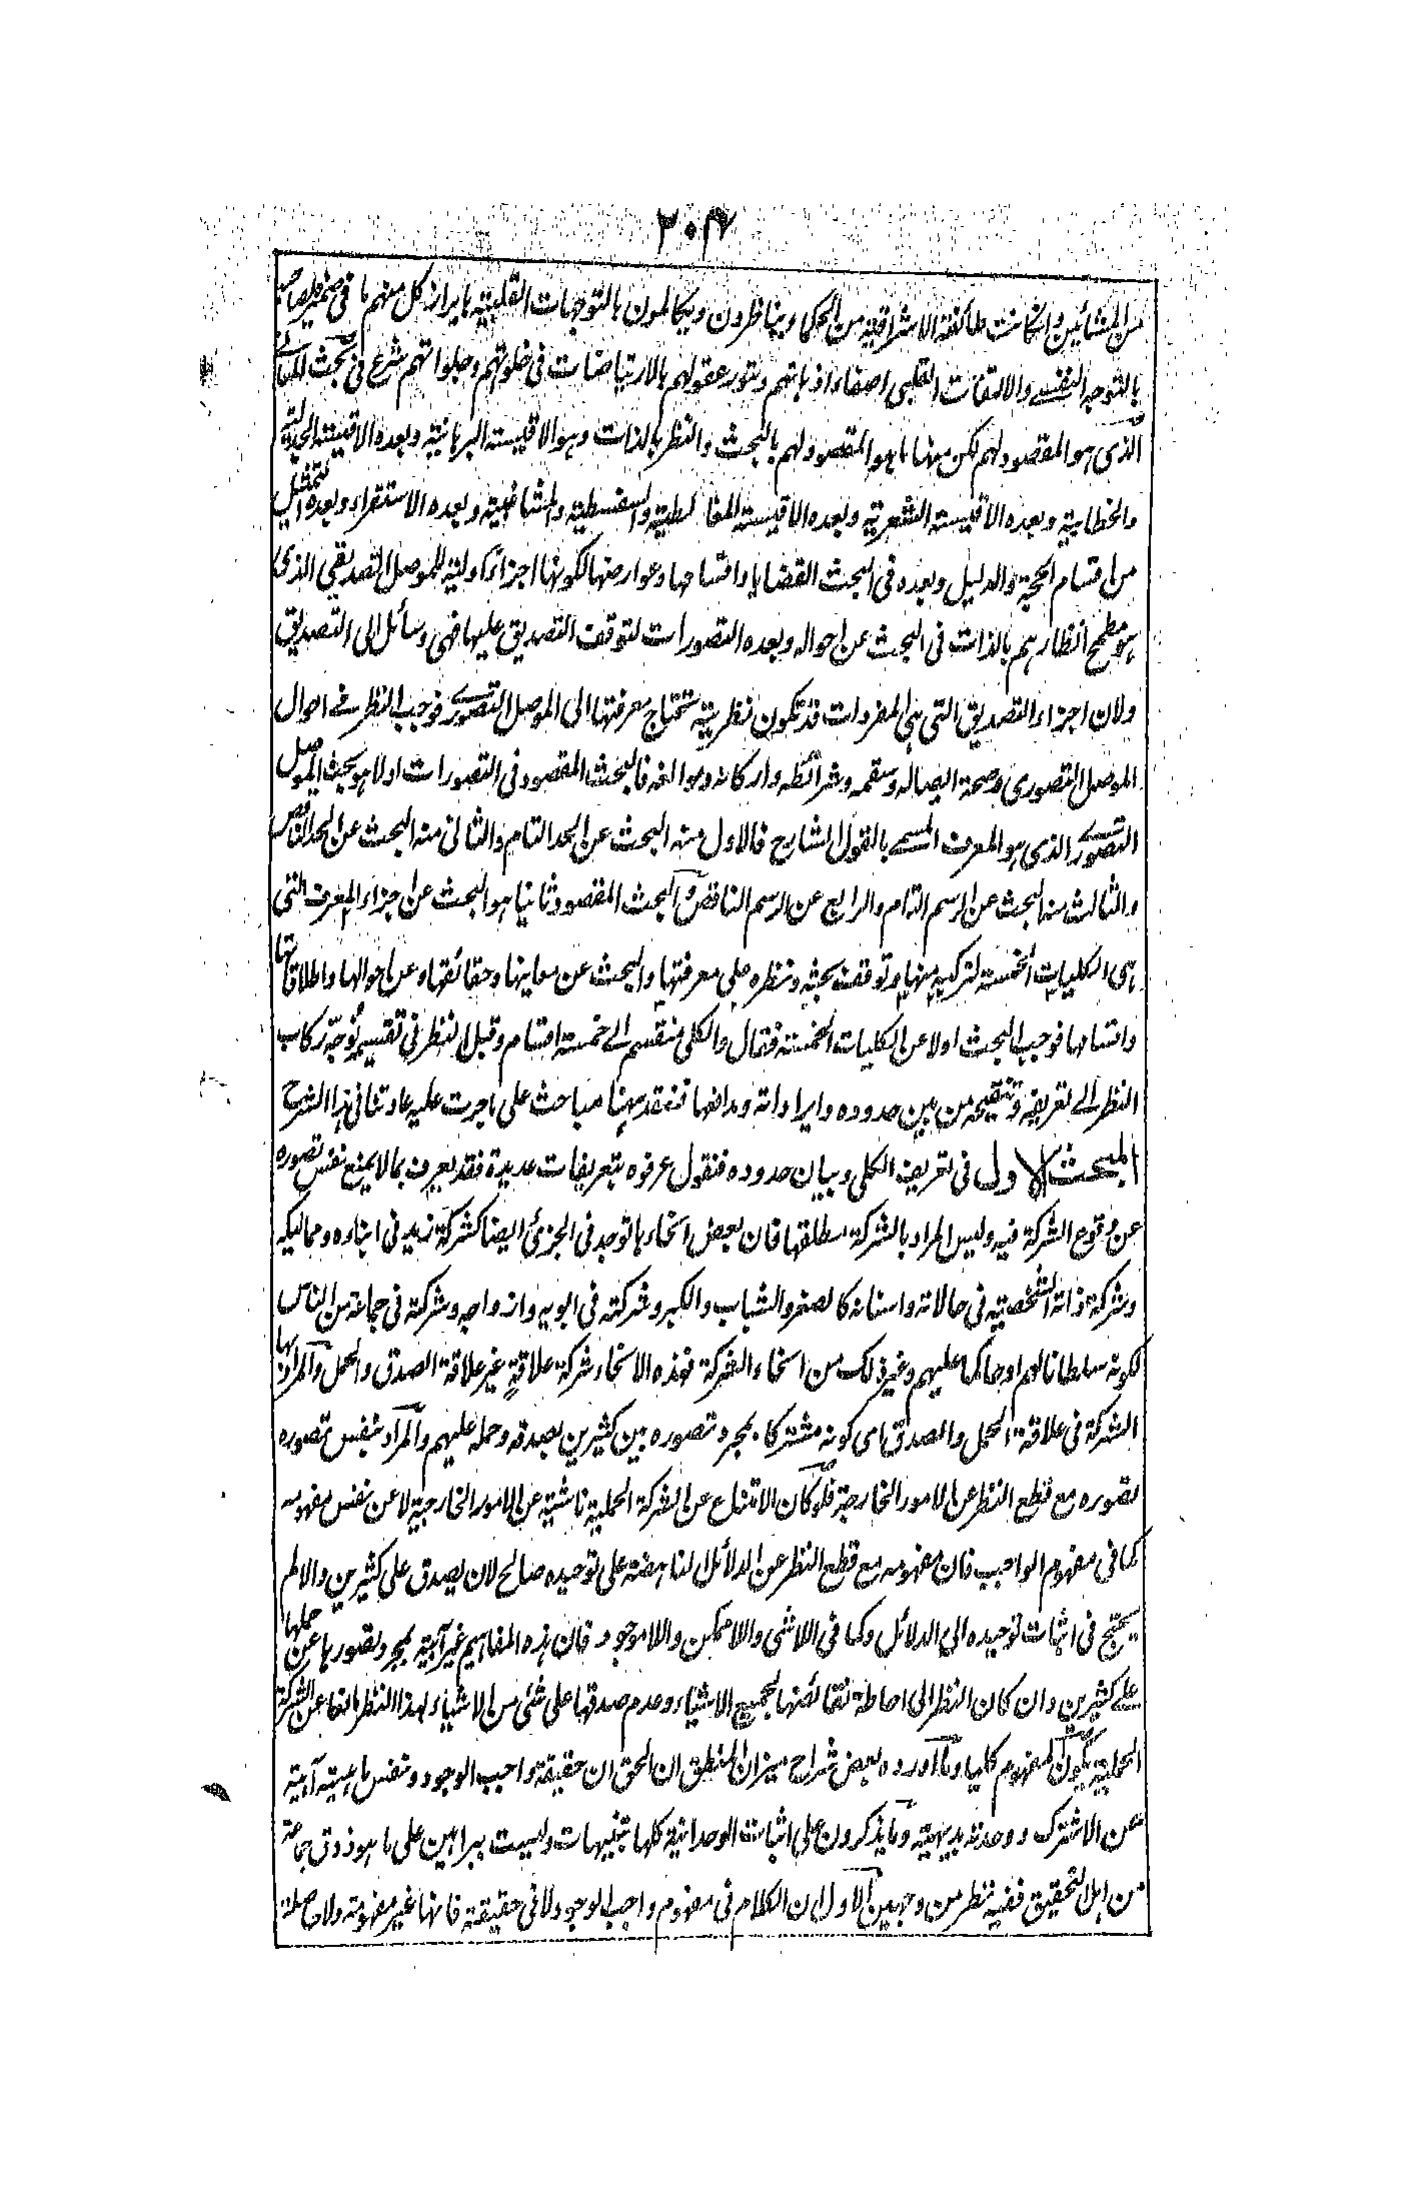 ٢٠٤
من المشائين وان كانت طائفة الاشراقية من الحكما ويناظرون ويكالمون بالتوجهات القلبية بابراز كل منهم ما فى ضميره لصاحبه
بالتوجه النفسے والالتفات القلبى لصفاء اذهانهم وتنور عقولهم بالارتياضات فى خلوتهم وجلواتهم شرع فى بحث
الذى هو المقصود لهم لكن منها ما هو المقصود لهم بالبحث والنظر بالذات وهو الاقيسة البرهانية وبعده الاقيسة الجدلية
والخطابية وبعده الاقيسة الشعرية وبعده الاقيسة المغالطية والسفسطية والمشاغبية وبعده الاستقراء وبعده التمثيل
من اقسام الحجة والدليل وبعده فى البحث القضايا واقسامها وعوارضها لكونها اجزاء اولية للموصل التصديقى الذى
هو مطمح انظارهم بالذات فى البحث عن احواله وبعده التصورات لتوقف التصديق عليها فهى وسائل الى التصديق
ولان اجزاء التصديق التى هى المفردات قد تكون نظرية تحتاج معرفتها الى الموصل التصورے فوجب النظر فے احوال
الموصل التصورى وصحة ايصاله وسقمه وشرائطه واركانه وموانعه فالبحث المقصود فى التصورات اولا هو بحث الموصل
التصورے الذى هو المعرف المسمے بالقول الشارح فالاول منه البحث عن الحد التام والثانى منه البحث عن الحد الناقص
والثالث منه البحث عن الرسم التام والرابع عن الرسم الناقص والبحث المقصود ثانيا هو البحث عن اجزاء المعرف التى
هى الكليات الخمسة لتركبه منها وتوقف بحثه ونظره على معرفتها والبحث عن معاينها وحقائقها وعن احوالها واطلاقاتها
واقسامها فوجب البحث اولا عن الكليات الخمسة فقال والكلى منقسم الے خمسة اقسام وقبل النظر فى تقسيمه نوجّه ركاب
النظر الے تعريفه وتنقيحه من بين حدوده وايراداته ودافعها فنعقد ههنا مباحث على ما جرت عليه عادتنا فى هذا الشرح
المبحث الاول فى تعريف الكلى وبيان حدوده فنقول عرفوه بتعريفات عديدة فقد يعرف بما لا يمنع نفس تصوره
عن وقوع الشركة فيه وليس المراد بالشركة مطلقها فان بعض انحاءها توجد فى الجزئى ايضا كشركة زيد فى ابناءه ومماليكه
وشركة ذاته الشخصية فى حالاته واسنانه كالصغر والشباب والكبر وشركته فى ابويه وازواجه وشركته فى جماعة من الناس
لكونه سلطانا لهم او حاكما عليهم وغير ذلك من انحاء الشركة فهذه الانحاء شركة علاقةٍ غير علاقة الصدق والحمل والمراد بها
الشركة فى علاقة الحمل والصدق اى كونه مشتركا بمجرد تصوره بين كثيرين بصدقه وحمله عليهم والمراد بنفس تصوره
تصوره مع قطع النظر عن الامور الخارجة فلو كان الامتناع عن الشركة الحملية ناشية عن الامور الخارجية لا عن نفس مفهومه
كما فى مفهوم الواجب فان مفهومه مع قطع النظر عن الدلائل الناهضة على توحيده صالح لان يصدق على كثيرين والا لم
يحتج فى اثبات توحيده الى الدلائل وكما فى اللاشى واللاممكن واللاموجود فان هذه المفاهيم غير آبية بمجرد تصورها عن حملها
علے كثيرين وان كان النظر الى احاطة نقائضها لجميع الاشياء وعدم صدقها على شئى من الاشياء لهذا النظر مانعا عن الشركة
الحملية يكون المفهوم كليا وما اورده بعض شراح ميزان المنطق ان الحق ان حقيقة واجب الوجود ونفس ماهيته آبية
عن الاشترك ووحدته بديهية وما يذكرون على اثبات الوحدانية كلها تنبيهات وليست ببراهين على ما هو ذوق جماعة
من اهل التحقيق ففيه نظر من وجهين الاول ان الكلام فى مفهوم واجب الوجود لا فى حقيقته فانها غير مفهومة ولا حاصلة